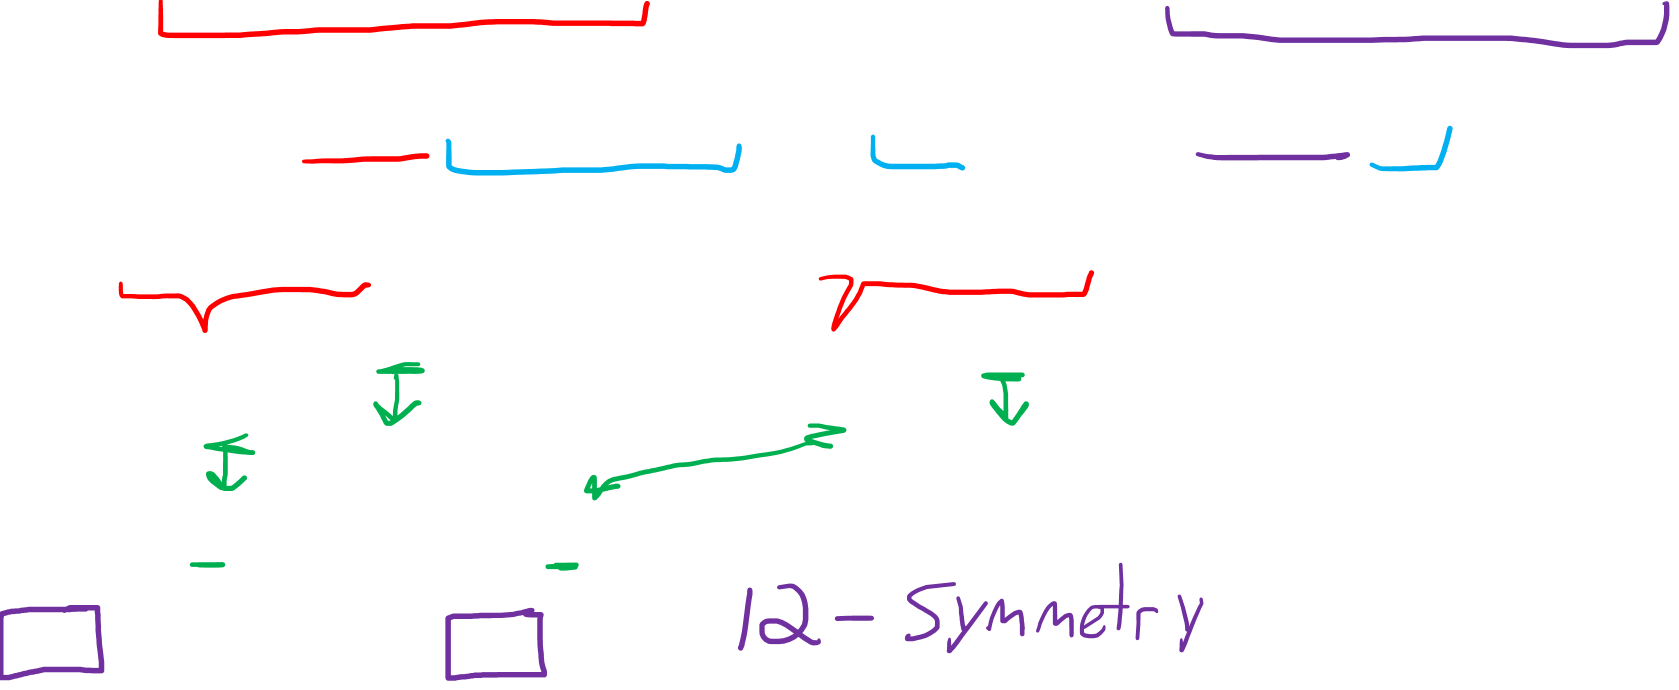 12 - Symmetry